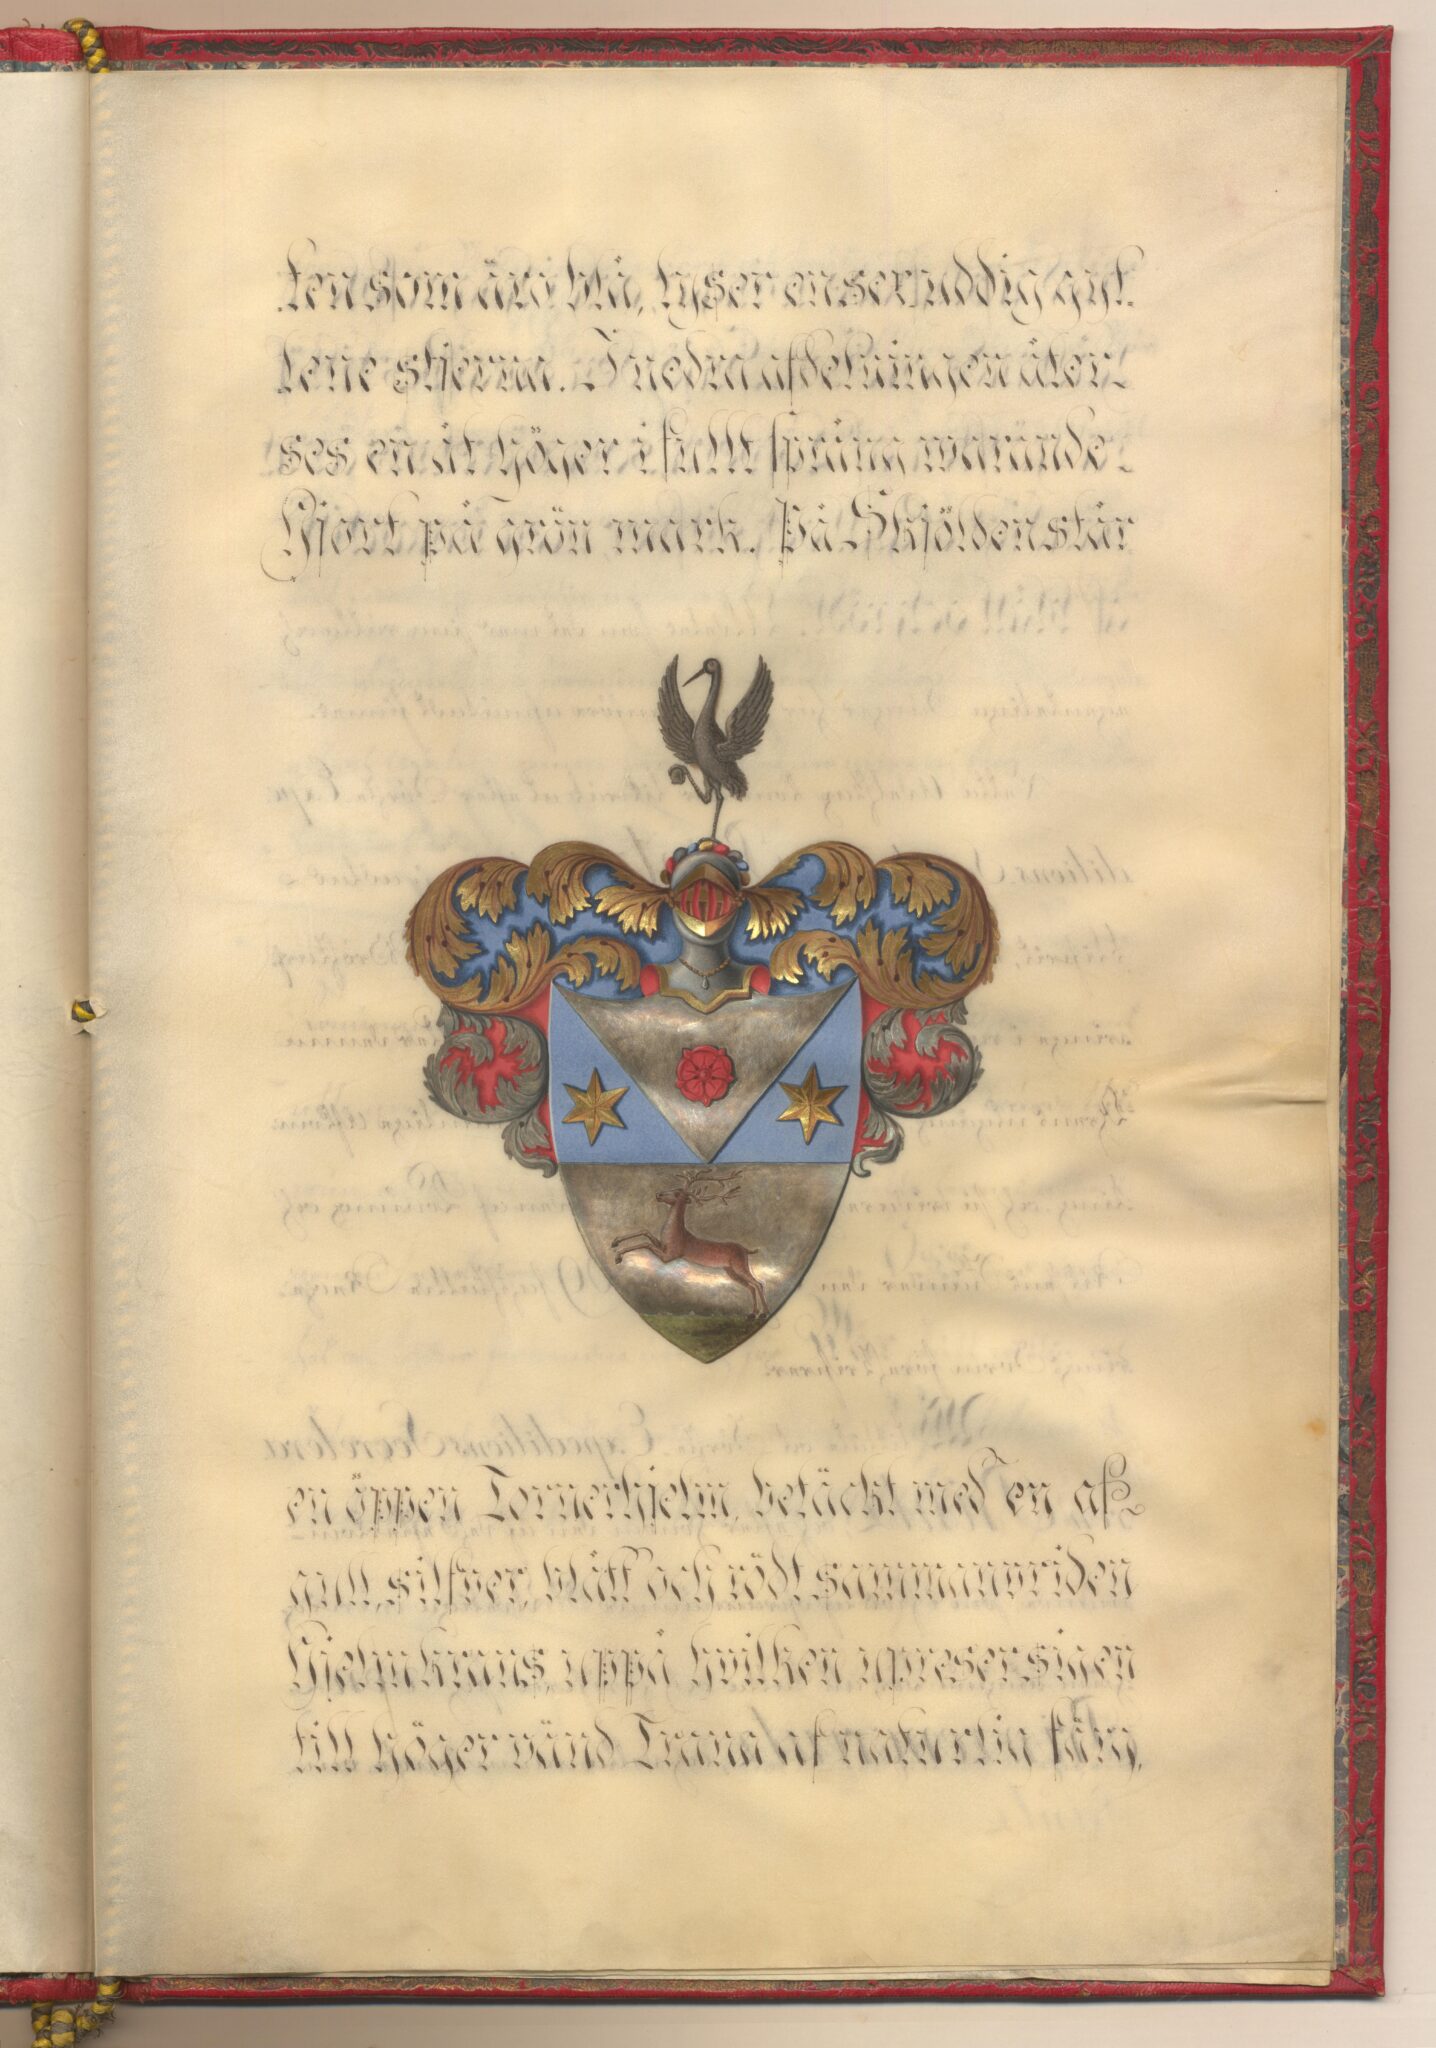 ten som äro blå, lyser en sexuddig gyl.
lene stjerna. I nedra afdelningen åter-
ses en åt höger i fullt språng warande
Hjort på grön mark. På Skjölden står
en öppen Tornerhjelm, betäckt med en af
gull, silfver, blått och rödt sammanvriden
Hjelmkrans, uppå hvilken upreser sig en
till höger vänd Trana af naturlig färg,